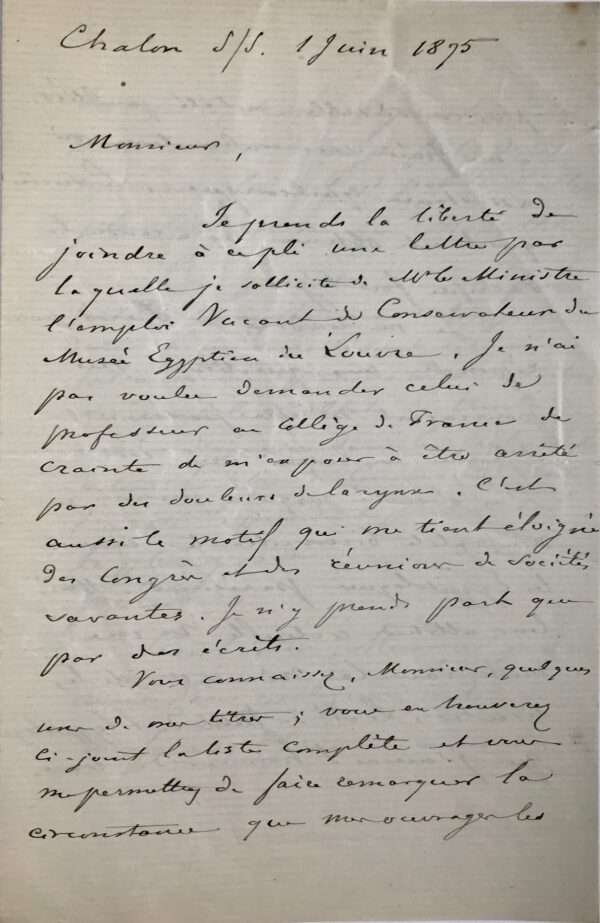 Chalon S/S. 1 Juin 1875
Monsieur,
Je prends la liberté de
joindre à ce pli une lettre par
laquelle je sollicite de Mr le Ministre
l'emploi vacant de Conservateur du
Musée Egyptien du Louvre. Je n'ai
pas voulu demander celui de
professeur au Collège de France de
crainte de m'exposer à être arrêté
par des douleurs de larynx. C'est
aussi le motif qui me tient éloigné
des Congrès et des réunions de sociétés
savantes. Je n'y prends part que
par des écrits.
Vous connaissez, Monsieur, quelques
uns de mes titres; vous en trouverez
ci-joint la liste complète et vous
me permettrez de faire remarquer la
circonstance que mes ouvrages les